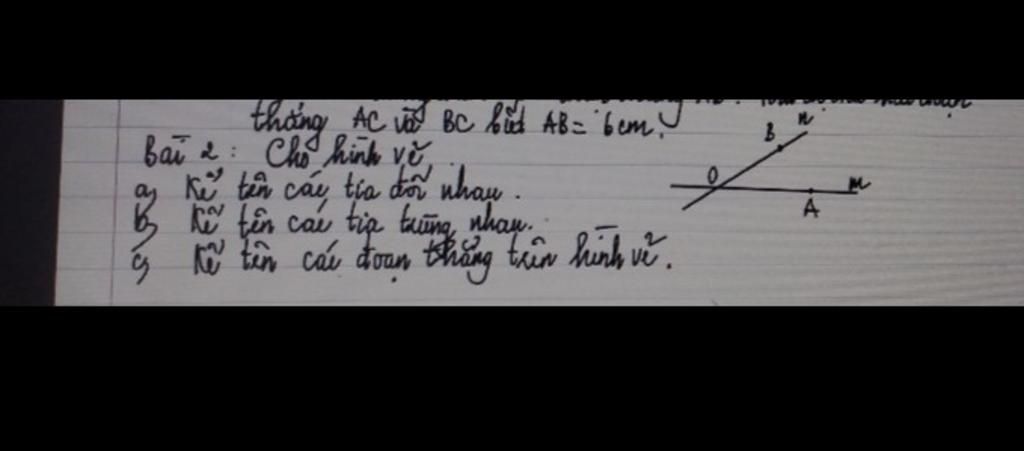 thẳng AC và BC biết AB = 6cm.
Bài 2: Cho hình vẽ
a) Kể tên các tia đối nhau.
b) Kể tên các tia trùng nhau.
c) Kể tên các đoạn thẳng trên hình vẽ.
B n
O m
A